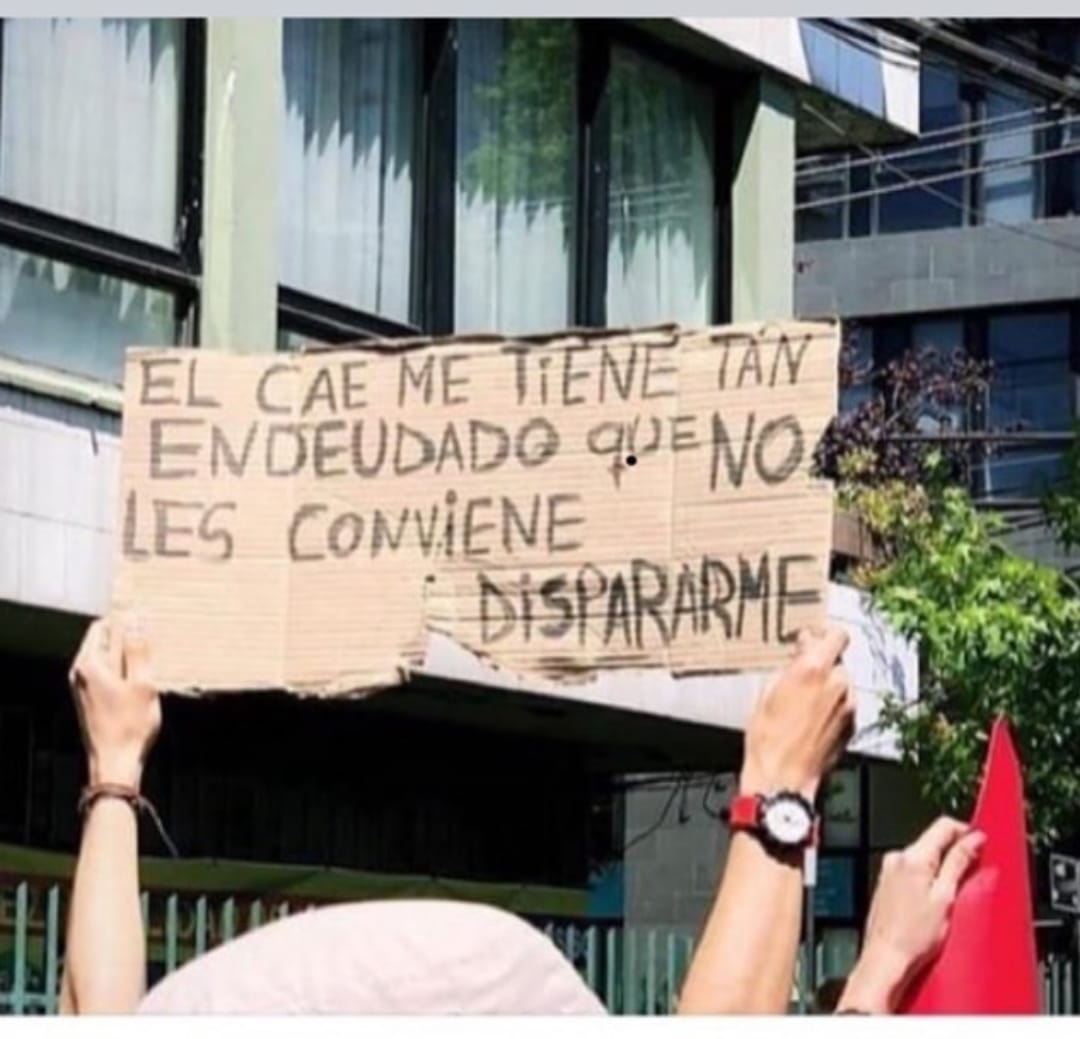 EL CAE ME TiENE TAN
ENDEUDADO qUE NO
LES CONViENE
DiSPARARME